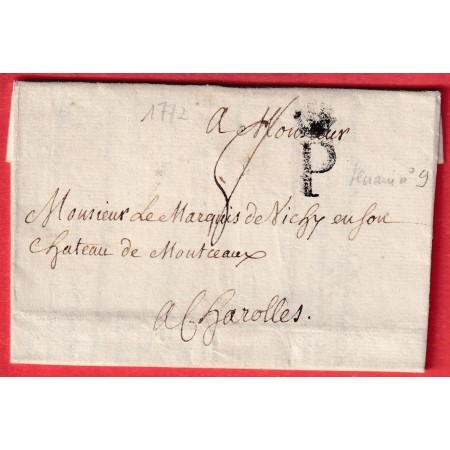 1772
a Monsieur
P
n° 9
Monsieur Le Marquis de Vichy en son
Chateau de Montceaux
a Charolles.